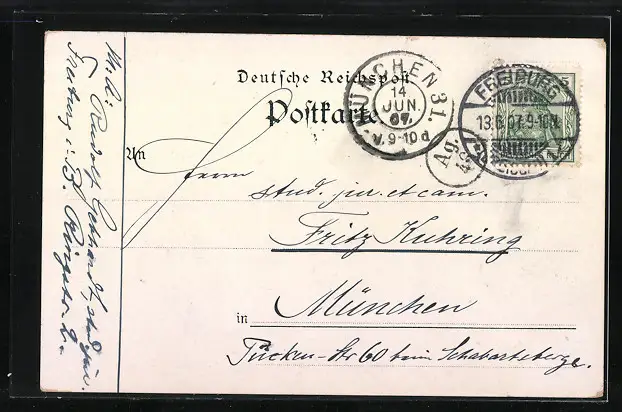 Deutsche Reichspost
Postkarte
MÜNCHEN 31.
14
JUN.
07.
V. 9-10 d
FREIBURG
13.6.07.9-10N
Ag.
An
Herrn
stud. jur. et cam.
Fritz Kuhring
in München
Türken-Str 60 beim
Rudolf
Freiburg i. B.